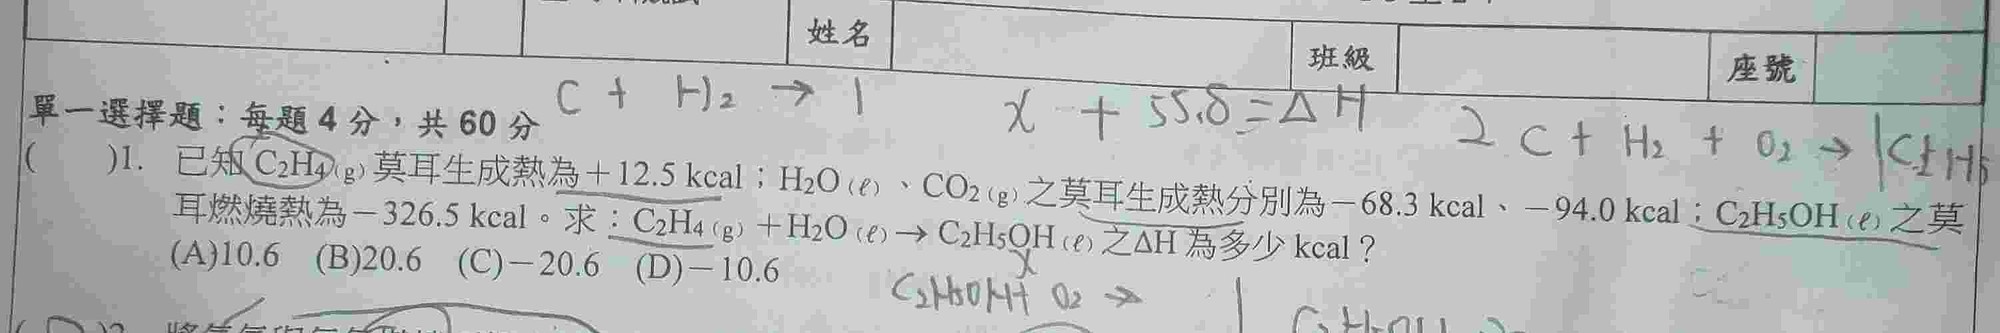 姓名
班級
座號
C + H₂ → 1
x + 55.8 = ΔH
2C + H₂ + O₂ → 1C₂H5
單一選擇題：每題 4 分，共 60 分
( )1. 已知 C₂H₄(g) 莫耳生成熱為＋12.5 kcal；H₂O(ℓ)、CO₂(g) 之莫耳生成熱分別為－68.3 kcal、－94.0 kcal；C₂H₅OH(ℓ) 之莫
耳燃燒熱為－326.5 kcal。求：C₂H₄(g)＋H₂O(ℓ)→C₂H₅OH(ℓ) 之ΔH 為多少 kcal？
(A)10.6 (B)20.6 (C)－20.6 (D)－10.6
x
C₂H5OH+ O₂ →